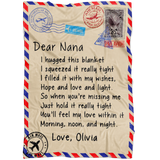 Dear Nana
I hugged this blanket
I squeezed it really tight
I filled it with my wishes,
Hope and love and light
So when you're missing me
Just hold it really tight
You'll feel my love within it
Morning, noon, and night.
Love, Olivia